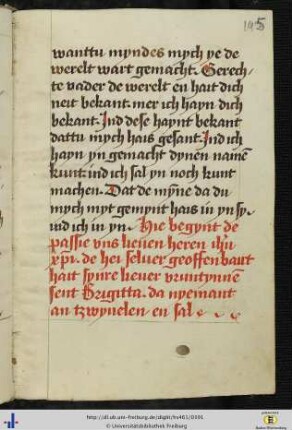 195
wanttu myndes mych ye de
werelt wart gemacht. Gerech/
te vader de werelt en hait dich
neit bekant. mer ich hayn dich
bekant. Ind dese haynt bekant
dattu mych hais gesant. Ind ich
hayn yn gemacht dynen namē
kunt: ind ich sal yn noch kunt
machen. Dat de mȳne da du
mych myt gemynt hais in yn sy.
vnd ich in yn. Hie begȳnt de
passie vns lieuen heren ihū
xpī. de hei seluer geoffenbairt
hait synre lieuer vruntynnē
sent Brigitta. da nyemant
an tzwyuelen en sal
http://dl.ub.uni-freiburg.de/diglit/hs463/0391
© Universitätsbibliothek Freiburg